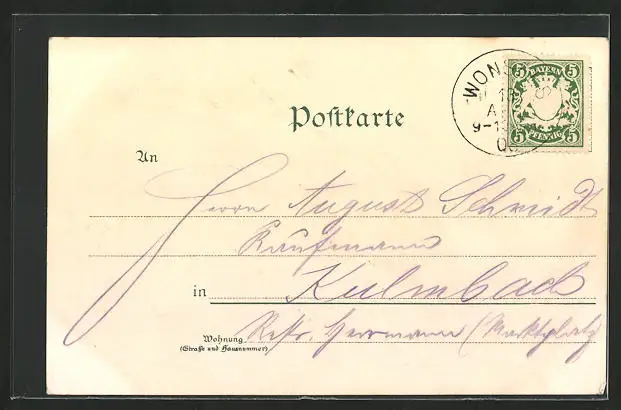 WONS
18
5 BAYERN 5
A
9-1
00
5 PFENNIG 5
Postkarte
An
Herrn August Schmidt
Kaufmann
in Kulmbach
Restr. Herrmann (Marktplatz)
Wohnung
(Straße und Hausnummer)